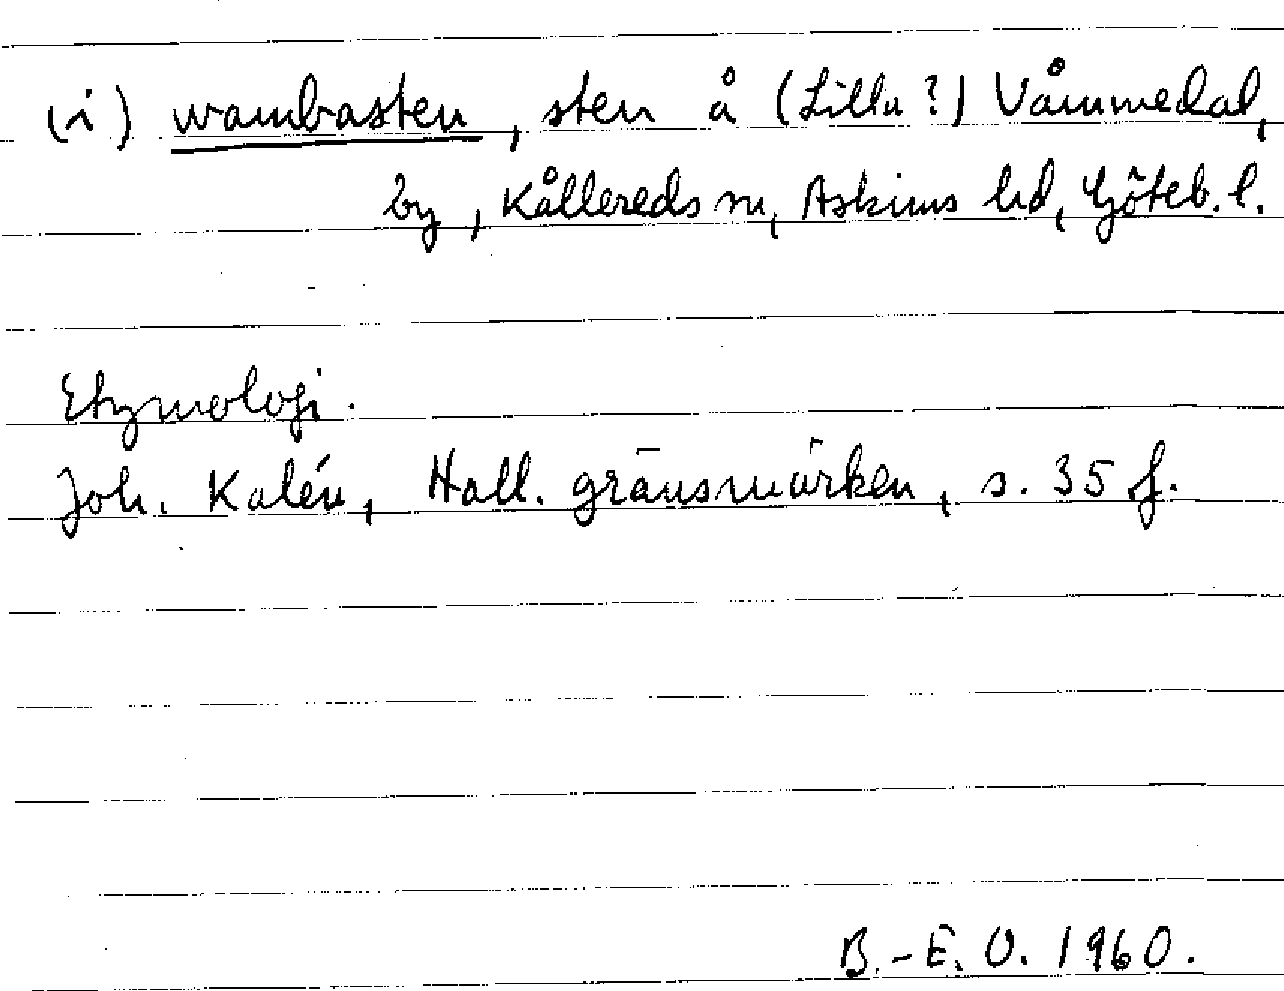 (i) wambasten, sten å (Lilla?) Våmmedal,
by, Kållereds sn, Askims hd, Göteb. l.
Etymologi.
Joh. Kalén, Hall. gränsmärken, s. 35 f.
B.-E. O. 1960.